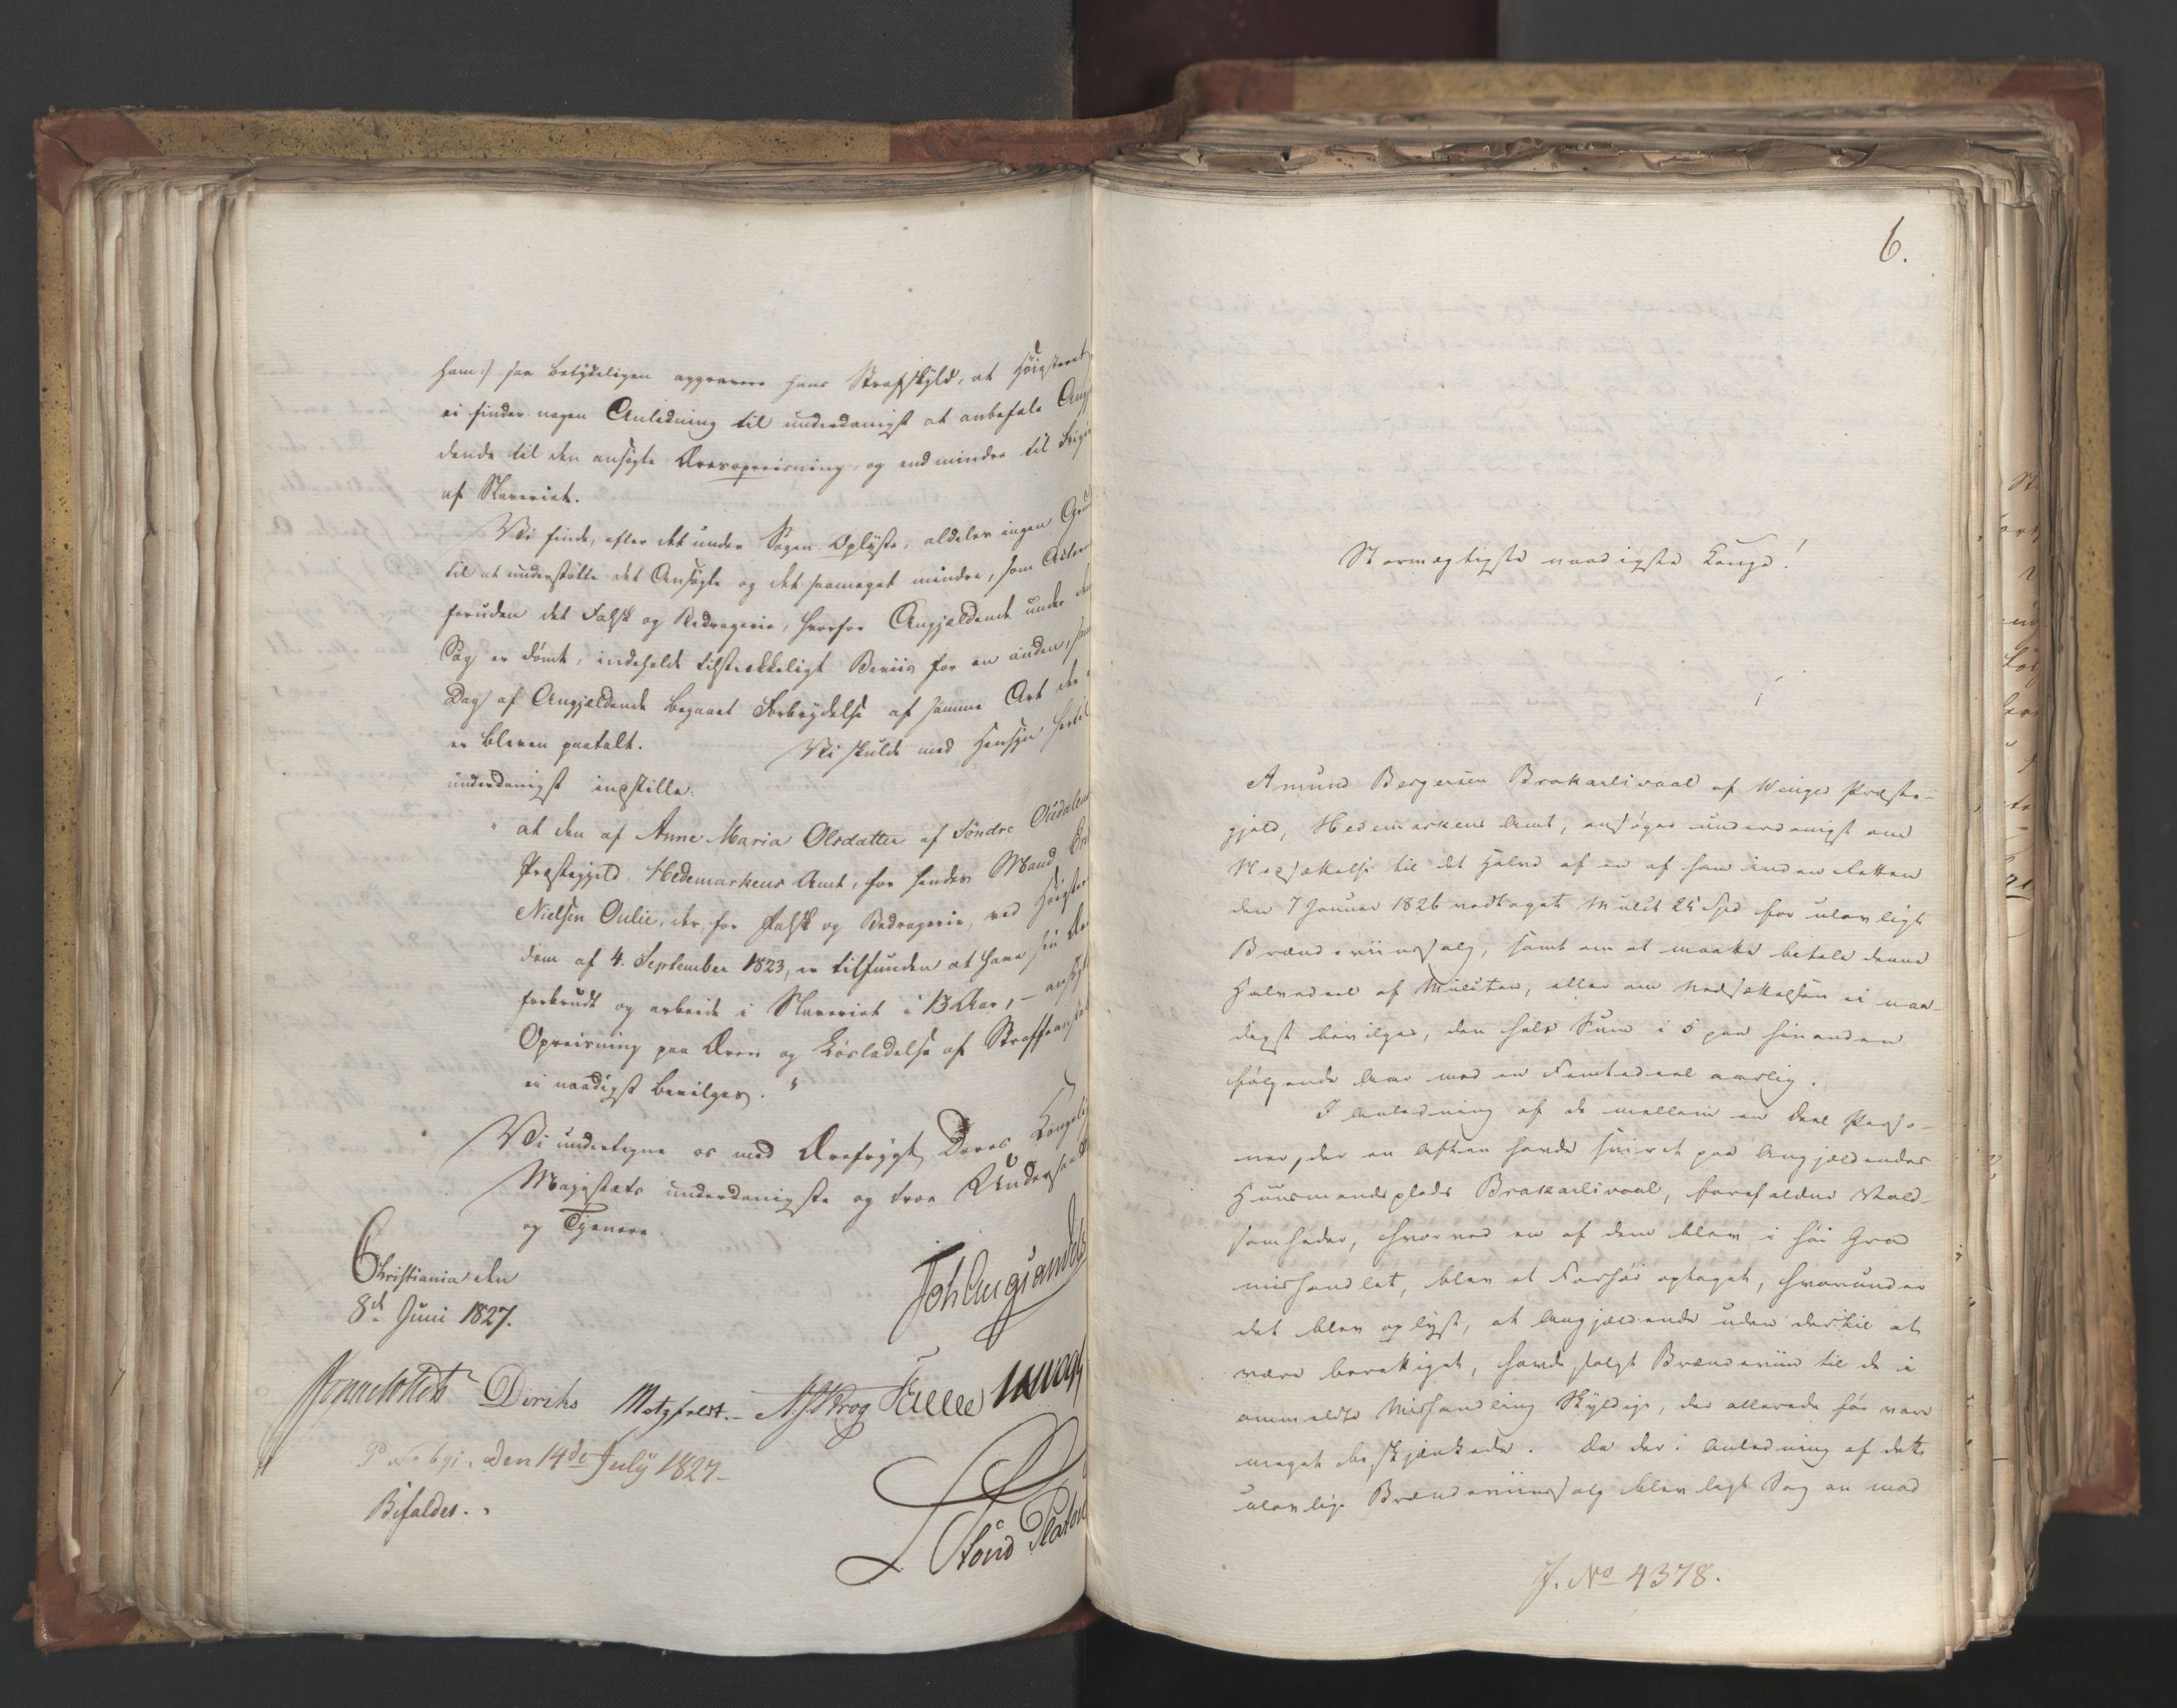 ham:/ saa betydeligen aggravere hans Strafskyld, at Høiesteret
ei finder nogen Anledning til underdanigst at anbefale Ang
dende til den ansøgte Æresopreisning, og end mindre til
af Slaveriet.
Vi finde, efter det under Sagen Oplyste, aldeles ingen
til at understøtte det Ansøgte og det saameget mindre, som
foruden det Falsk og Bedragerie, hvorfor Angjeldende under den
Sag er dømt, indeholde tilstrækkeligt Beviis for en anden,
Dag af Angjeldende begaaet Forbrydelse af samme Art der
er bleven paatalt. Vi skulde med Hensyn hertil
underdanigst indstille:
" at den af Anne Maria Olsdatter af Søndre Oudalens
Præstegjeld, Hedemarkens Amt, for hendes Mand
Nielsen Oulie, der, for Falsk og Bedragerie, ved Høieste
dom af 4. September 1823, er tilfunden at have sin
forbrudt og arbeide i Slaveriet i 13 Aar, – ansøgte
Opreisning paa Æren og Løsladelse af Straffeanstal
ei naadigst bevilges. "
Vi undertegne os med Ærefrygt Deres Kongelige
Majestæts underdanigste og troe Undersaatter
og Tjenere.
Christiania den
8de Juni 1827.
Diriks Motzfeldt.– Krog
den 14de July 1827–
Bifaldes.
6.
Stormægtigste naadigste Konge!
Amund Bergersen Brakarlivaal af Winger Præste-
gjeld, Hedemarkens Amt, ansøger underdanigst om
Nedsættelse til det Halve af en af ham inden Retten
den 7 Januar 1826 vedtaget Mulct 25 Spd for ulovligt
Brændeviinssalg, samt om at maatte betale denne
Halvedeel af Mulcten, eller om Nedsættelsen ei naa-
digst bevilges, den hele Sum i 5 paa hinanden
følgende Aar med en Femtedeel aarlig.
I Anledning af de mellem en Deel Perso-
ner, der en Aften havde sviret paa Angjældendes
Huusmandsplads Brakarlivaal, forefaldne Vold-
somheder, hvorved en af dem blev i høi Grad
mishandlet, blev et Forhør optaget, hvorunder
det blev oplyst, at Angjældende uden dertil at
være berettiget, havde solgt Brændeviin til de i
ommeldte Mishandling Skyldige, der allerede før vare
meget beskjænkede. Da der i Anledning af dette
ulovlige Brændeviinssalg blev lagt Sag an mod
J. No 4378.